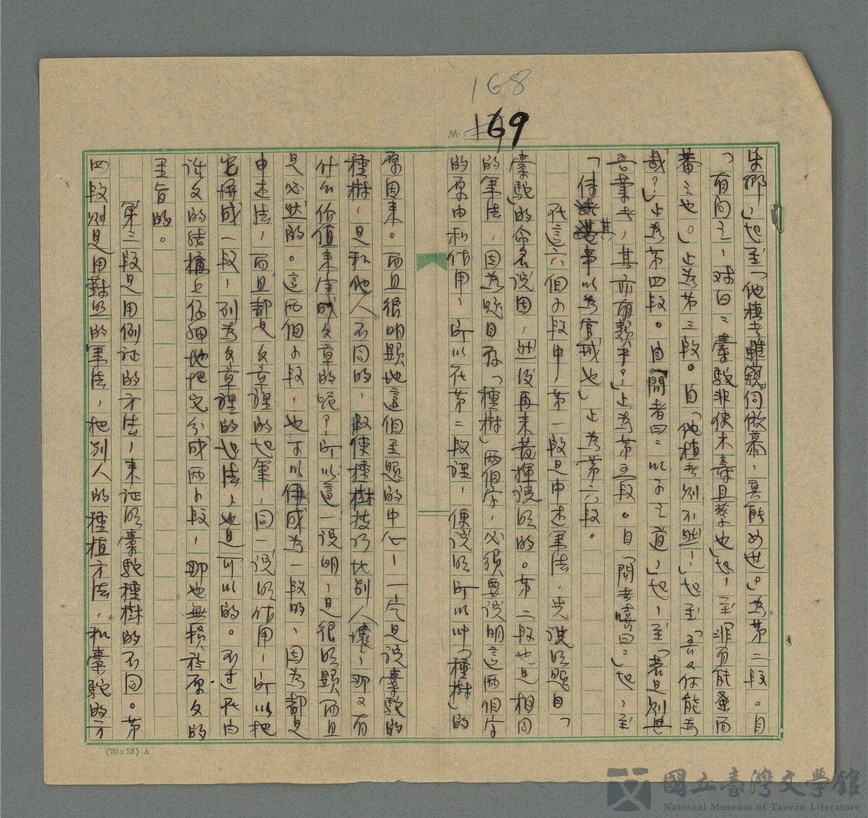 168
№ 169
生鄉」起至「他植者雖窺伺傚慕，莫能如也。」為第二段。自
「有問之，對曰：橐駝非使木壽且孳也」起，至「非有能蚤而
蕃之也。」止為第三段。自「他植者則不然」起至「吾又何能為
哉？」止為第四段。自「問者曰：以子之道」起，至「若是則與
吾業者，其亦有類乎？」止為第五段。自「問者嘻曰：」起，至
「傳其事以為官戒也」止為第六段。
在這六個小段中，第一段是申述筆法，先說明題目「
橐駝」的命名說因，然後再来發揮說明的。第二段也是相同
的筆法，因為題目有「種樹」兩個字，必須要說明這兩個字
的原由和作用，所以在第二段裡，便說明所以叫「種樹」的
原因来。而且很明顯地這個主題的中心，一定是說橐駝的
種樹，是和他人不同的，假使種樹技巧比別人壞，那又有
什么价值来寫成文章的呢？所以這一說明，是很明顯而且
是必狀的。這两個小段，也可以併成為一段的，因為都是
申述法，而且都是文章裡的起筆，同一說明作用，所以把
它併成一段，列為文章裡的起法，也是可以的。不过我向
诸文的结構上仔细地把它分成两小段，那也無损於原文的
主旨的。
第三段是用例证的方法，来证明橐駝種樹的不同。第
四段则是用對照的筆法，把別人的種植方法，和橐駝的方
(20×25) A
國立臺灣文學館
National Museum of Taiwan Literature